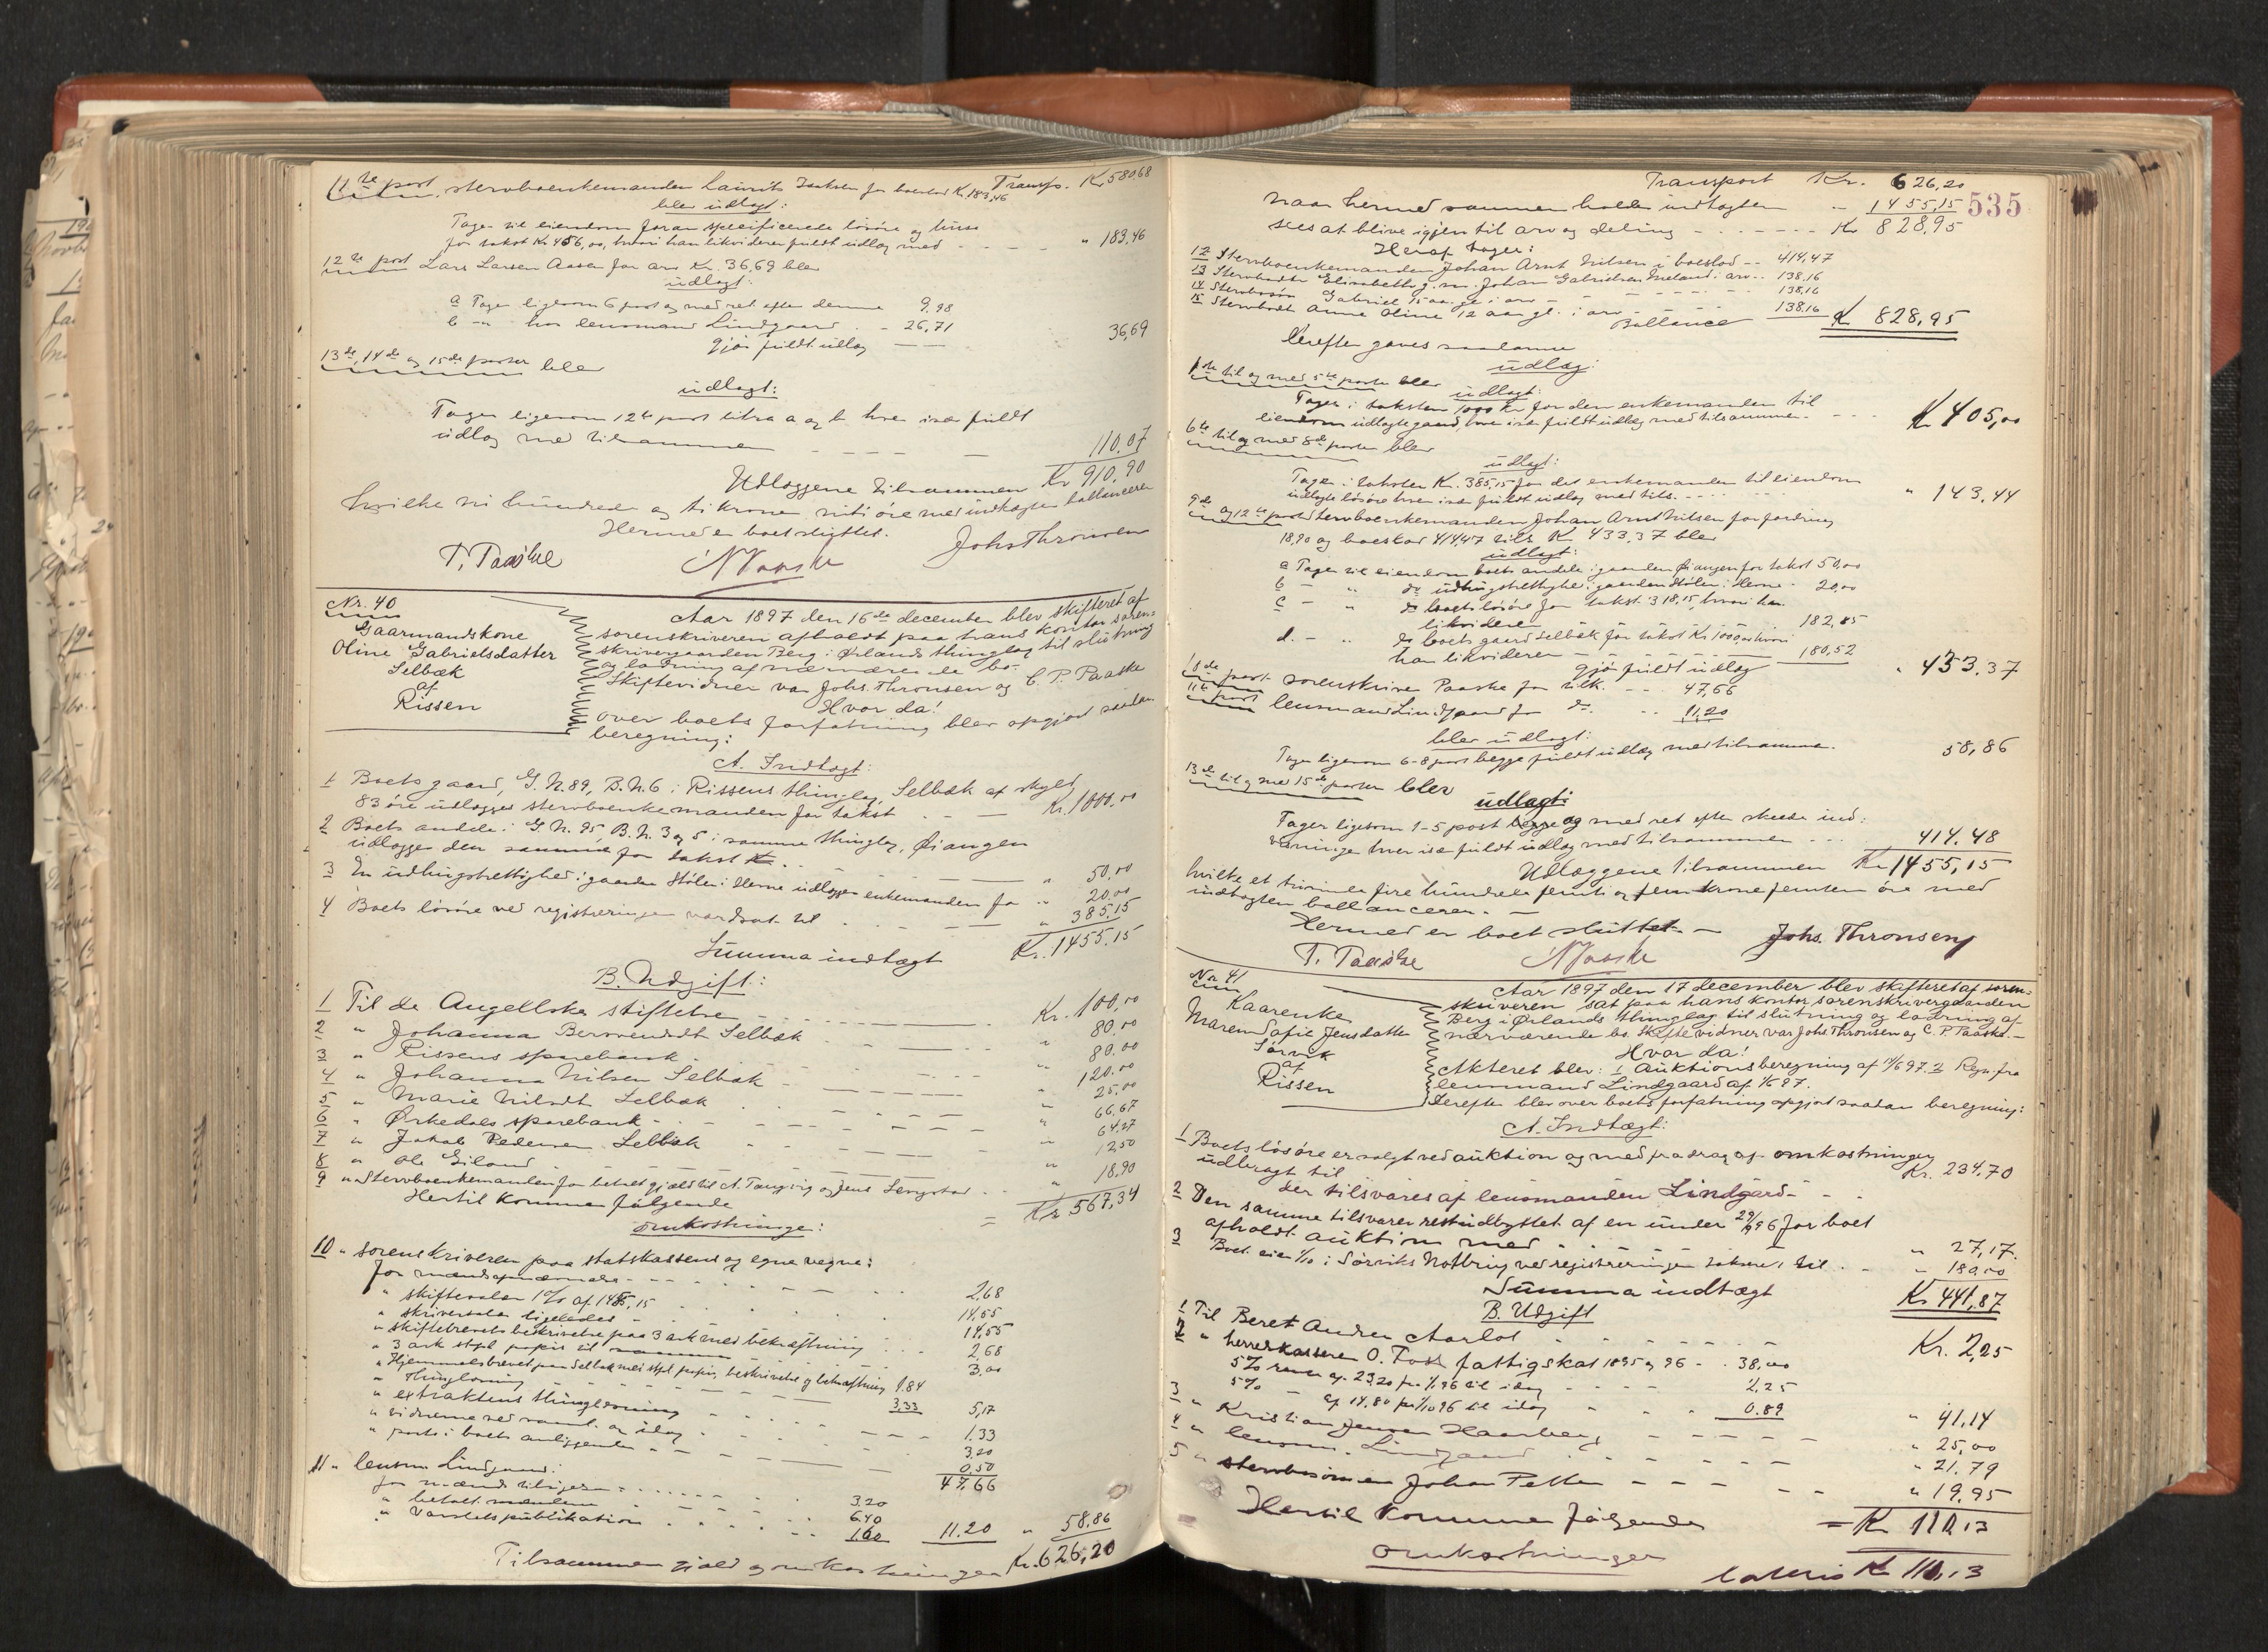 11te post stervboenkemanden Laurits Isaksen for boeslod Kr. 183,46 Transp. Kr 580 68
blev udlagt:
Tager til eiendom foran specificerede løsøre og huse
for takst Kr 456,00, hvori han likviderer fuldt udlæg med - - - " 183,46
12te post Lars Larsen Aasen for arv Kr. 36,69 blev
udlagt:
a Tager ligesom 6 post og med ret efter denne 9,98
b -"- hos lensmand Lindgaard - 26,71
gjør fuldt udlæg - - 36,69
13de, 14de og 15de poster blev
udlagt:
Tager ligesom 12te post litra a og b hver især fuldt
udlæg med tilsammen - - - - - 110.07
Udlæggene tilsammen Kr 910,90
hvilke ni hundrede og ti kroner nitti øre med indtægten ballancerer
Hermed er boet sluttet.
T. Paaske N Paaske Johs Thronsen
Nr. 40
Gaarmandskone
Oline Gabrielsdatter
Selbæk
af
Rissen
Aar 1897 den 16de december blev skifteret af
sorenskriveren afholdt paa hans kontor soren=
skrivergaarden Berg i Ørlands thinglag til slutning
og lodning af nærværende bo.
Skiftevidner var Johs. Thronsen og C. P. Paaske
Hvor da!
over boets forfatning blev opgjort saadan
beregning:
A. Indtægt:
1 Boets gaard, G. N. 89, B. N. 6 i Rissens thinglag, Selbæk af skyld
83 øre udlægges stervboenkemanden for takst - - Kr. 1000,00
2 Boets andele i G. N. 95 B. N. 3 og 5 i samme thinglag, Øiangen
udlægges den samme for takst Kr. - - " 50,00
3 En udtingsrettighed i gaarden Stølen i Herne udlægges enkemanden for " 20,00
4 Boets løsøre ved registreringen værdsat til - - " 385,15
Summa indtægt Kr. 1455.15
B. Udgift:
1 Til de Angellske stiftelser - - Kr. 100,00
2 " Johanna Selbæk - - " 80,00
3 " Rissens sparebank - - " 80.00
4 " Johanna Nilsen Selbæk - - " 120.00
5 " Marie Nilsdt Selbæk - - " 25,00
6 " Ørkedals sparebank - - " 66,67
7 " Jakob Pedersen Selbæk - - " 64,27
8 " Ole Eiland - - " 12,50
9 " Stervboenkemanden for betalt gjæld til A. og Jens - - " 18,90
Hertil kommer følgende = Kr 567,34
omkostninger:
10 " sorenskriveren paa statskassens og egne vegne:
for mændsopnævnelse - - 2,68
" skiftesalær 1% af 1455,15 - - 14,55
" skriversalær ligeledes - - 14,55
" skiftebrevets beskrivelse paa 3 ark med bekræftning - - 2,68
" 3 ark stpl. papir til samme 3,00
" Hjemmelsbrevet paa Selbæk med stpl. papir, beskrivelse og bekræftning 1,84
" Thinglæsning - - 3,33 5,17
" extraktens thinglæsning - - 1.33
" vidnerne ved saml. og idag - - 3,20
" porto i boets anliggender - - 0,50
47,66
11 " lensm. Lindgaard:
for mænds tilsigelse - - 3.20
" betalt mændene - - 6.40
" Varslets publikation - - 1,60 11.20 " 58,86
Tilsammen gjæld og omkostninger Kr. 626,20
Transport Kr. 626,20
535
naar hermed sammenholdes indtægten - 1455,15
sees at blive igjen til arv og deling - - - Kr 828,95
Heraf tager:
12 Stervboenkemanden Johan Arnt Nilsen i boeslod - - 414,47
13 Stervbodt Elisabeth g. m. Johan Gabrielsen i arv - - 138,16
14 Stervbosøn Gabriel 15 aar gl. i arv - - 138,16
15 Stervbodt Anna Oline 12 aar gl. i arv - - 138.16
Ballance Kr 828,95
Derefter gaves saadanne
udlæg:
1ste til og med 5te poster blev
udlagt:
Tager i taksten 1000 Kr for den enkemanden til
eiendom udlagte gaard, hver især fuldt udlæg med tilsammen - - Kr 405,00
6te til og med 8de poster blev
udlagt:
Tager i taksten Kr. 385,15 for det enkemanden til eiendom
udlagte løsøre hver især fuldt udlæg med tils. - - " 143,44
9de og 12te post stervboenkemanden Johan Arnt Nilsen for fordring
18,90 og boeslod 414,47 tils. Kr 433.37 blev
udlagt:
a Tager til eiendom boets andele i gaarden Øiangen for takst 50,00
b - " do udtingsrettighed i gaarden Stølen i Herne - 20,00
c - " do boets løsøre for takst 318,15, hvori han
likviderer - - 182,85
d. - " do boets gaard Selbæk for takst Kr 1000,00 hvori
han likviderer - - 180,52
gjør fuldt udlæg " 433.37
10de post sorenskriver Paaske for tilk. - - 47,66
11te post lensmand Lindgaard for do - - 11,20
blev udlagt:
Tager ligesom 6-8 post begge fuldt udlæg med tilsammen. 58,86
13de til og med 15de poster blev
udlagt:
Tager ligesom 1-5 post begge og med ret efter skeede ind=
væringer hver især fuldt udlæg med tilsammen - - 414.48
Udlæggene tilsammen Kr 1455,15
hvilke et tusinde fire hundrede femti og fem kroner femten øre med
indtægten ballancerer. -
Hermed er boet sluttet. -
T. Paaske N Paaske Johs. Thronsen
Nr. 41
Kaarenke
Maren Sofie Jensdatter
Sørvik
af
Rissen
Aar 1897 den 17 december blev skifteret af soren=
skriveren sat paa hans kontor sorenskrivergaarden
Berg i Ørlands thinglag til slutning og lodning af
nærværende bo. Skiftevidner var Johs Thronsen og C. P. Paaske. -
Hvor da!
Akteret blev: 1 Auktionsberegning af 97. 2 Regn. fra
lensmand Lindgaard af 97.
Derefter blev over boets forfatning opgjort saadan beregning:
A. Indtægt:
1 Boets løsøre er solgt ved auktion og med fradrag af omkostninger
udbragt til - - Kr. 234,70
der tilsvares af lensmanden Lindgård -
2 Den samme tilsvarer restudbyttet af en under 29/ 96 for boet
afholdt auktion med - - " 27,17.
3 Boet eier 1/10 i Sørviks Notbrug ved registreringen takseret til - - " 180,00
Summa indtægt Kr 441,87
B. Udgift
1 Til Beret Andrea Aarlot - - Kr. 2,25
2 " herredskasserer O. Fosh fattigskat 1895 og 96 - - 38,00
5% rente af 23.20 fra 96 til idag - - 2,25
5% - af 14,80 fra 1/10 96 til idag - - 0.89 " 41,14
3 " Kristian Jensen Haarberg - - " 25,00
4 " lensm. Lindgaard - - " 21.79
5 " stervbosønnen Johan Petter - - " 19.95
Hertil kommer følgende = Kr 110,13
omkostninger
Lateris Kr 110,13